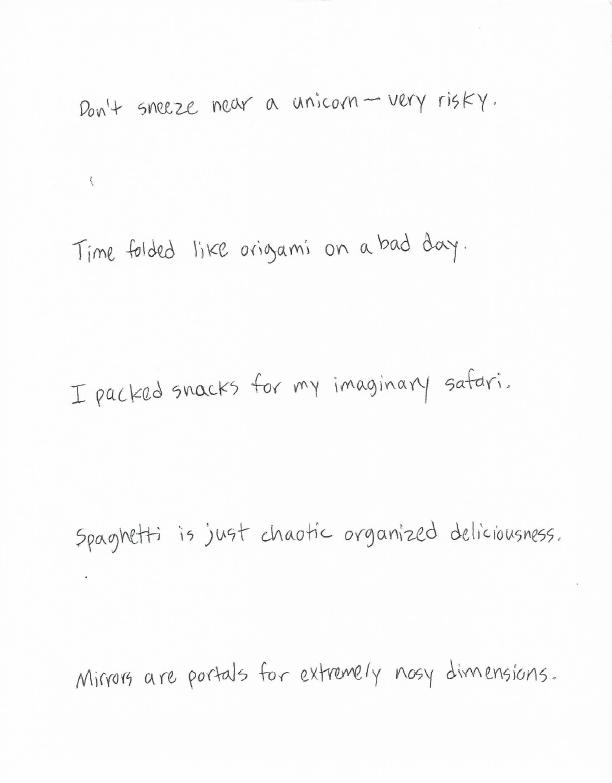 Don't sneeze near a unicorn — very risky.
Time folded like origami on a bad day.
I packed snacks for my imaginary safari.
Spaghetti is just chaotic organized deliciousness.
Mirrors are portals for extremely nosy dimensions.